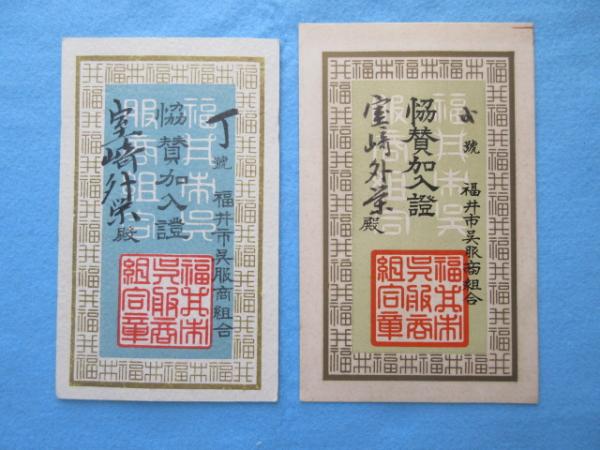 丁號
福井市呉服商組合
協賛加入證
室崎外栄殿
福井市
呉服商
組合章
號
福井市呉服商組合
協賛加入證
室崎外栄殿
福井市
呉服商
組合章